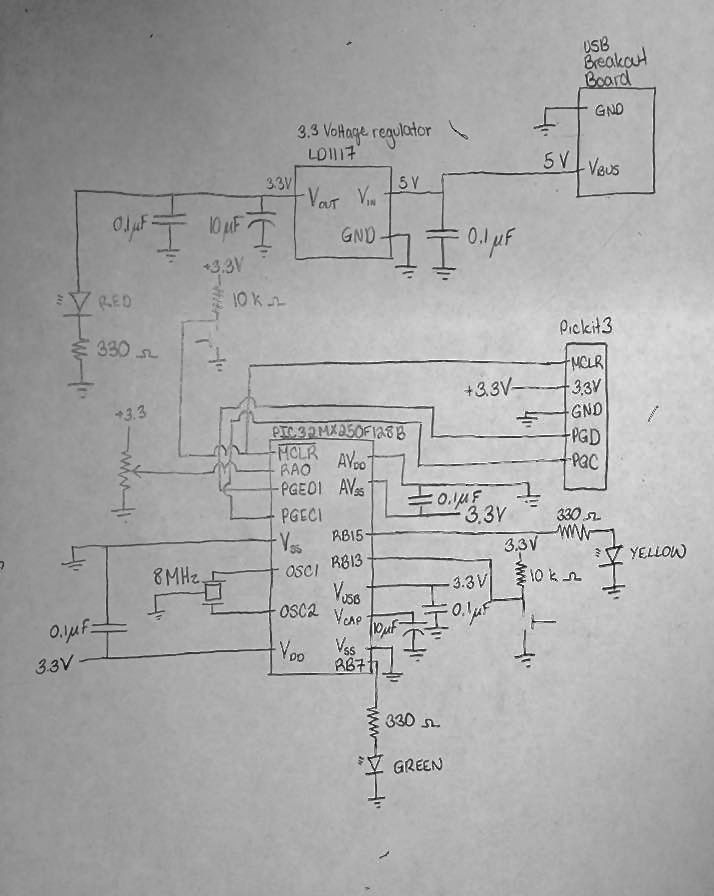 USB
Breakout
Board
GND
VBUS
5V
3.3 Voltage regulator
LD1117
3.3V
VOUT
VIN
5V
GND
0.1μF
10μF
0.1μF
+3.3V
10 k Ω
RED
330 Ω
Pickit3
MCLR
+3.3V
3.3V
GND
PGD
PGC
+3.3
PIC32MX250F128B
MCLR
RA0
PGED1
PGEC1
VSS
OSC1
OSC2
VDD
AVDD
AVSS
RB15
RB13
VUSB
VCAP
VSS
RB7
0.1μF
3.3V
330 Ω
YELLOW
3.3V
10 k Ω
3.3V
0.1μF
10μF
8MHz
0.1μF
3.3V
330 Ω
GREEN